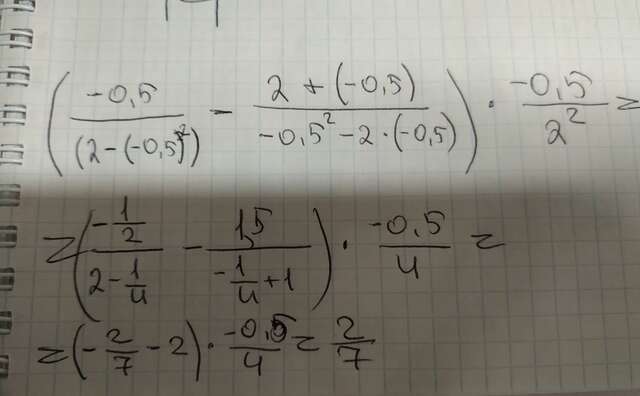 ( -0,5 / (2-(-0,5)²) - 2+(-0,5) / -0,5²-2·(-0,5) ) · -0,5 / 2² =
= ( -1/2 / 2-1/4 - 1,5 / -1/4+1 ) · -0,5 / 4 =
= (-2/7 - 2) · -0,5/4 = 2/7